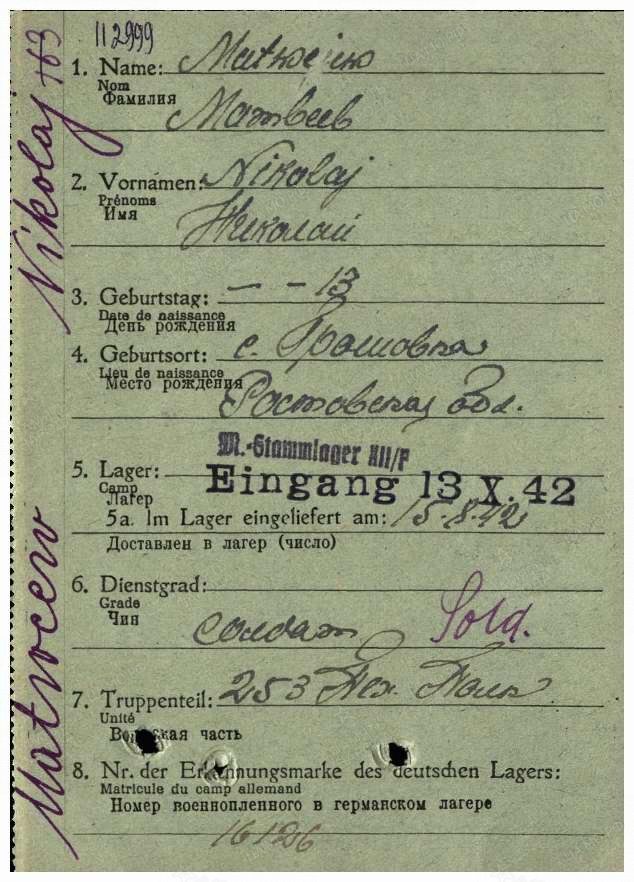 112999
1. Name:
Nom
Фамилия
Матвеев
2. Vornamen: Nikolaj
Prénoms
Имя
Николай
3. Geburtstag: — — 13
Date de naissance
День рождения
4. Geburtsort: с.
Lieu de naissance
Место рождения
Ростовская Обл.
M.-Stammlager XII/F
5. Lager:
Camp
Лагер
Eingang 13 X. 42
5a. Im Lager eingeliefert am: 15-8-42
Доставлен в лагер (число)
6. Dienstgrad:
Grade
Чин
солдат Sold.
7. Truppenteil: 253 Пех. Полк
Unité
часть
8. Nr. der Erkennungsmarke des deutschen Lagers:
Matricule du camp allemand
Номер военнопленного в германском лагере
16126
Matweew Nikolaj